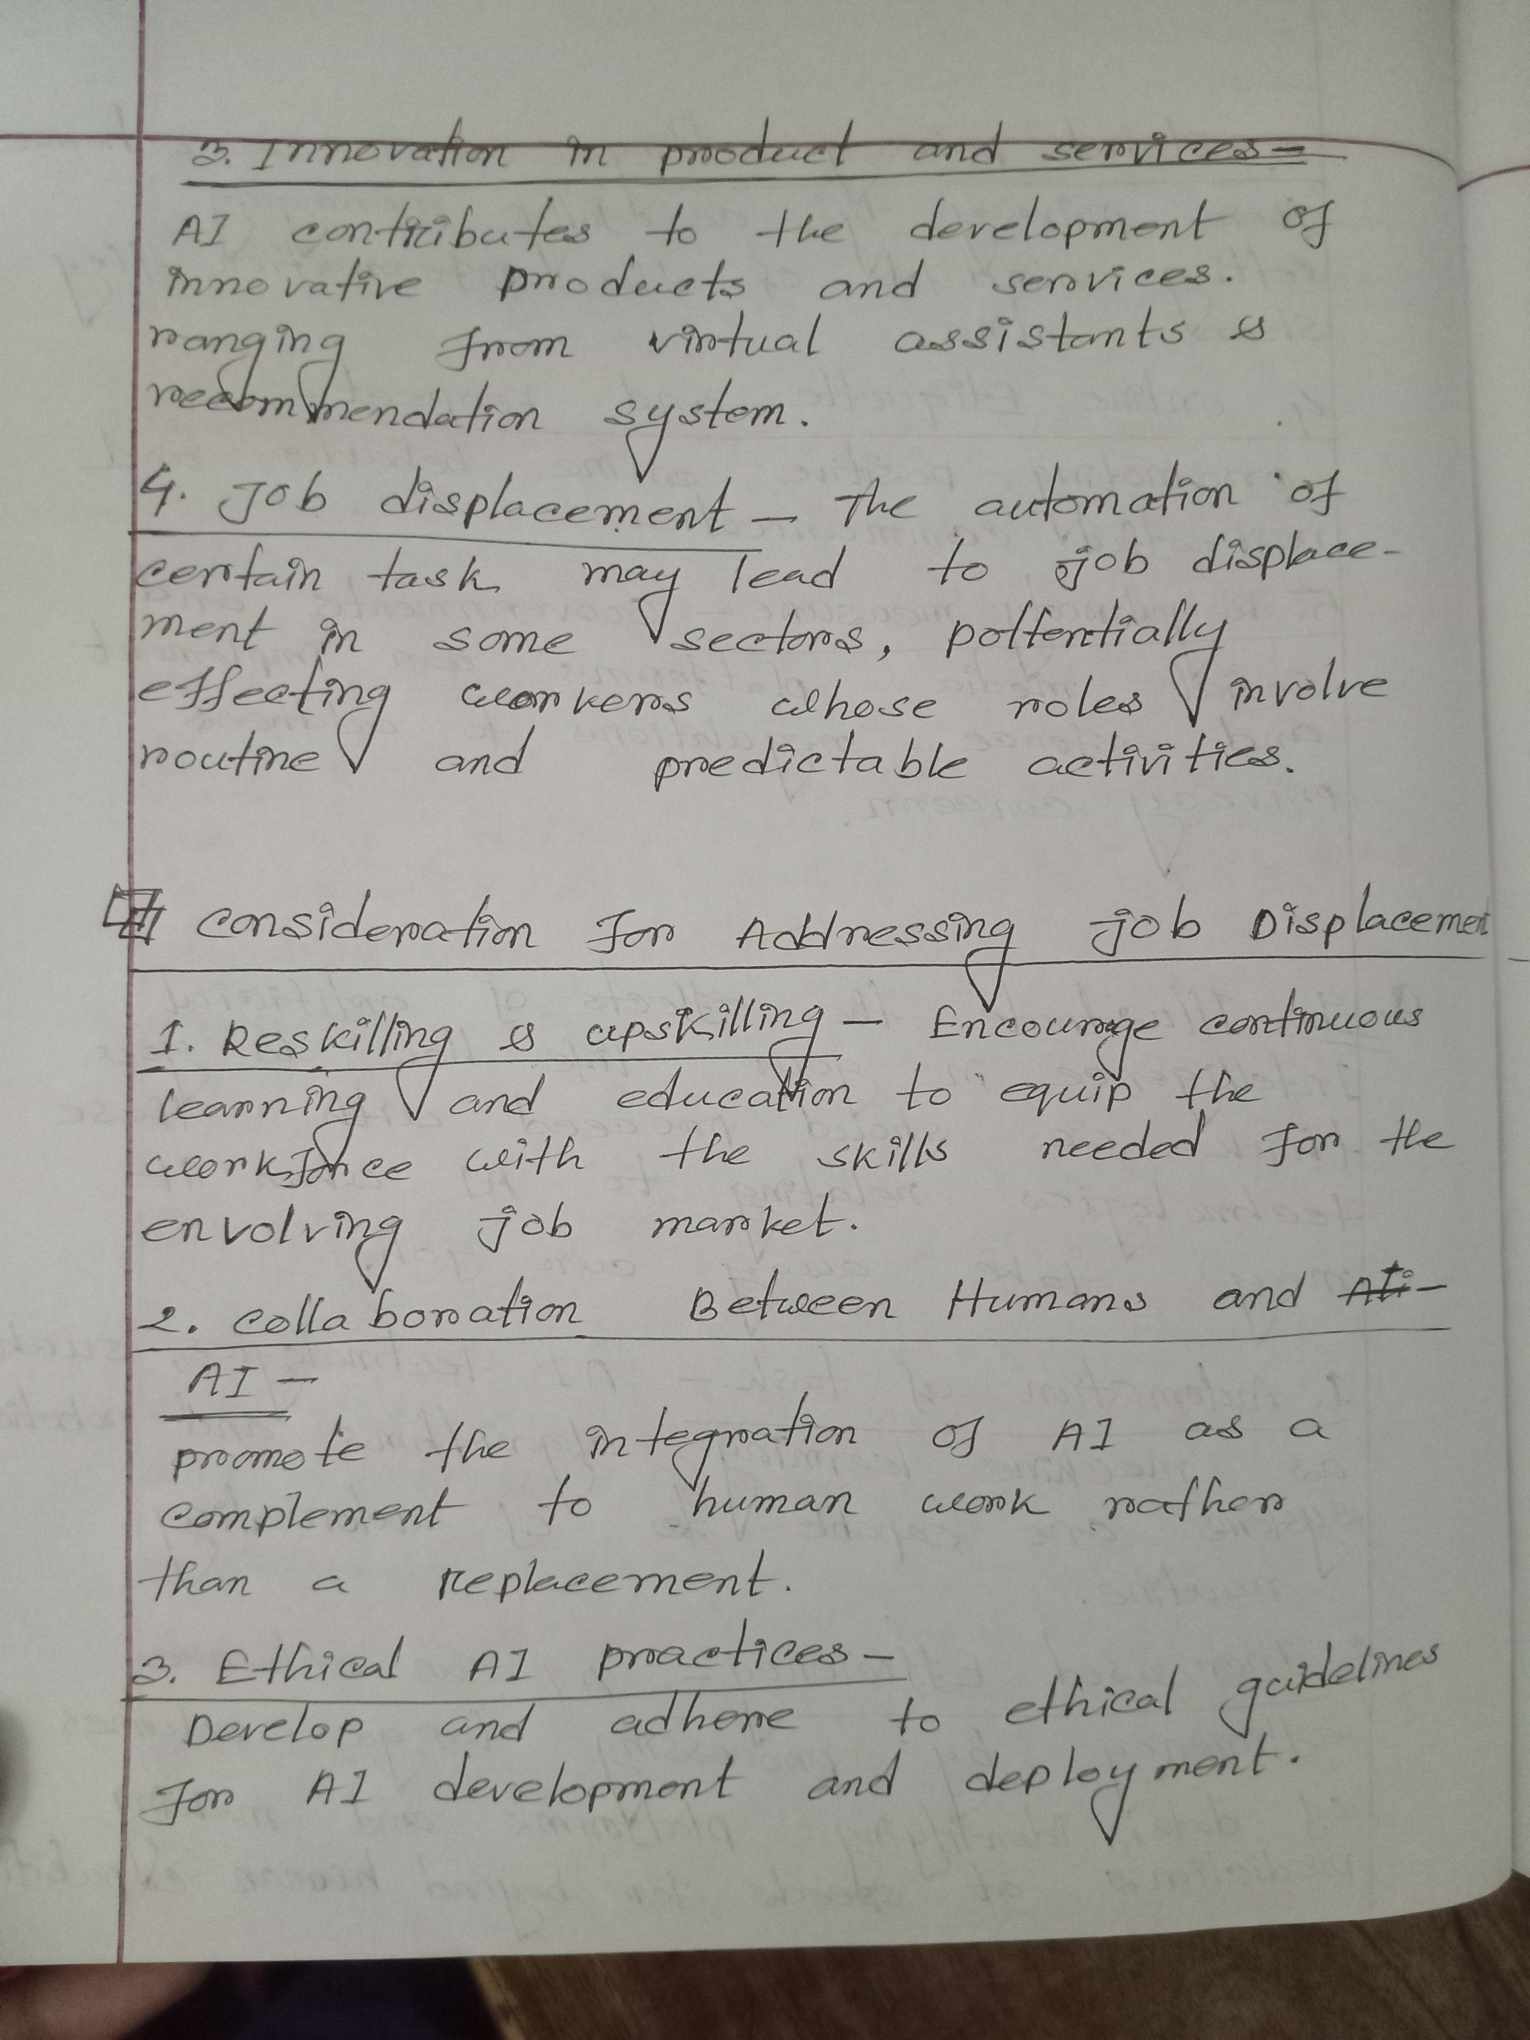 3. Innovation in product and services-
AI contributes to the development of
innovative products and services.
ranging from virtual assistants &
recommendation system.
4. Job displacement - The automation of
certain task may lead to job displace-
ment in some sectors, pottentially
effecting workers whose roles involve
routine and predictable activities.
Consideration for Addressing job Displacement
1. Reskilling & upskilling - Encourage continuous
learning and education to equip the
workforce with the skills needed for the
envolving job market.
2. Collaboration Between Humans and
AI -
promote the integration of AI as a
complement to human work rather
than a replacement.
3. Ethical AI practices -
Develop and adhere to ethical guidelines
for AI development and deployment.